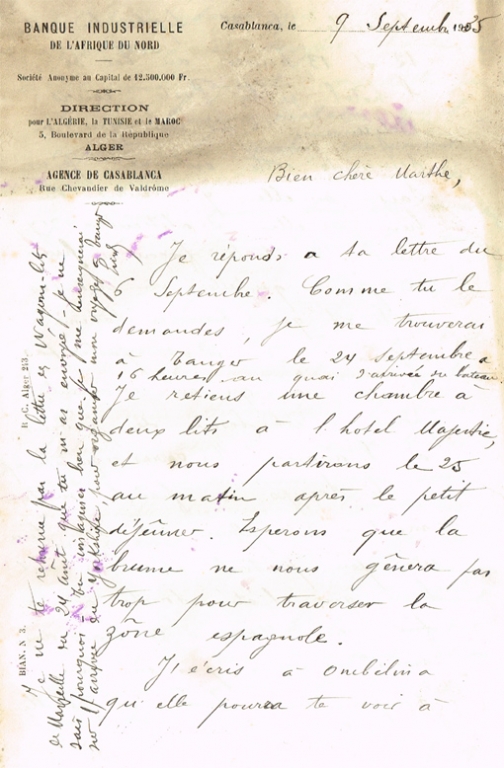 BANQUE INDUSTRIELLE
DE L'AFRIQUE DU NORD
Société Anonyme au Capital de 12.500.000 Fr.
DIRECTION
pour L'ALGÉRIE, la TUNISIE et le MAROC
5, Boulevard de la République
ALGER
AGENCE DE CASABLANCA
Rue Chevandier de Valdrôme
Casablanca, le 9 Septembre 1935
Bien chère Marthe,
Je réponds a ta lettre du
6 Septembre. Comme tu le
demandes, je me trouverai
à Tanger le 24 septembre a
16 heures au quai d'arrivée du bateau
Je retiens une chambre à
deux lits à l'hotel Majestic,
et nous partirons le 25
au matin après le petit
déjeuner. Esperons que la
brume ne nous gênera pas
trop pour traverser la
zône espagnole.
J'écris à Ombélina
qu'elle pourra te voir à
B. G. Alger 213.
BIAN. N 3.
Je ne te retourne pas la lettre des Wagons-lits
de Marseille du 24 août que tu m'as envoyée - je ne
sais pourquoi - Tu imagines bien que je me
l'arrivée du pour organiser mon voyage à Tanger